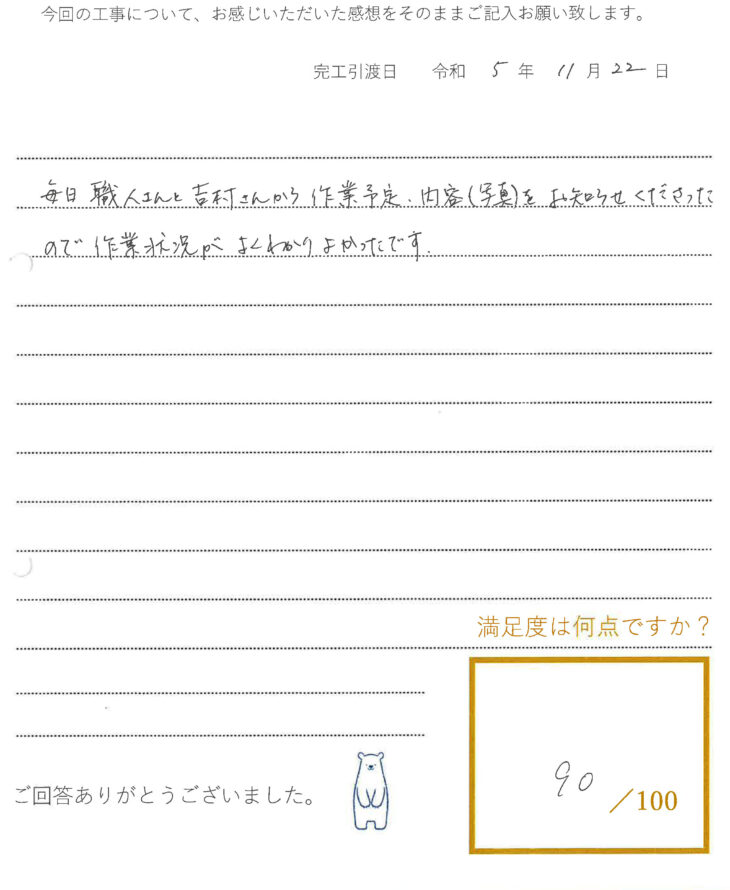 今回の工事について、お感じいただいた感想をそのままご記入お願い致します。
完工引渡日　令和 5 年 11 月 22 日
毎日 職人さんと吉村さんから 作業予定、内容(写真)を お知らせくださった
ので 作業状況が よくわかり よかったです.
満足度は何点ですか？
90 ／100
ご回答ありがとうございました。